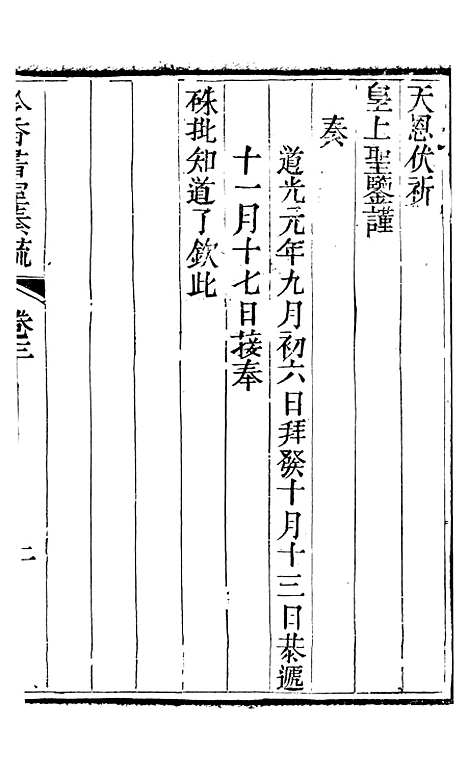 天恩伏祈
皇上聖鑒謹
奏
道光元年九月初六日拜發十月十三日恭遞
十一月十七日接奉
硃批知道了欽此
卷三
二